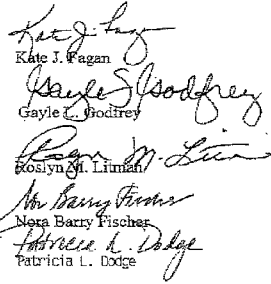 Kate J. Fagan
Kate J. Fagan
Gayle L. Godfrey
Gayle L. Godfrey
Roslyn M. Litman
Roslyn M. Litman
Nora Barry Fischer
Nora Barry Fischer
Patricia L. Dodge
Patricia L. Dodge